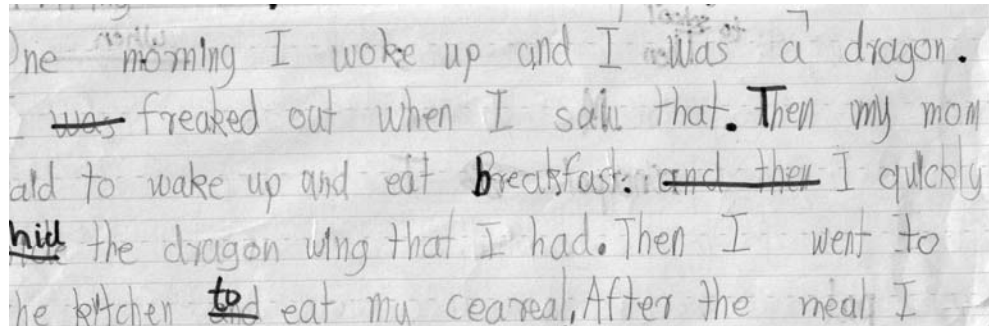 One morning I woke up and I was a dragon.
I was freaked out when I saw that. Then my mom
aid to wake up and eat breakfast. and then I quickly
hid the dragon wing that I had. Then I went to
he kitchen to eat my ceareal, After the meal I